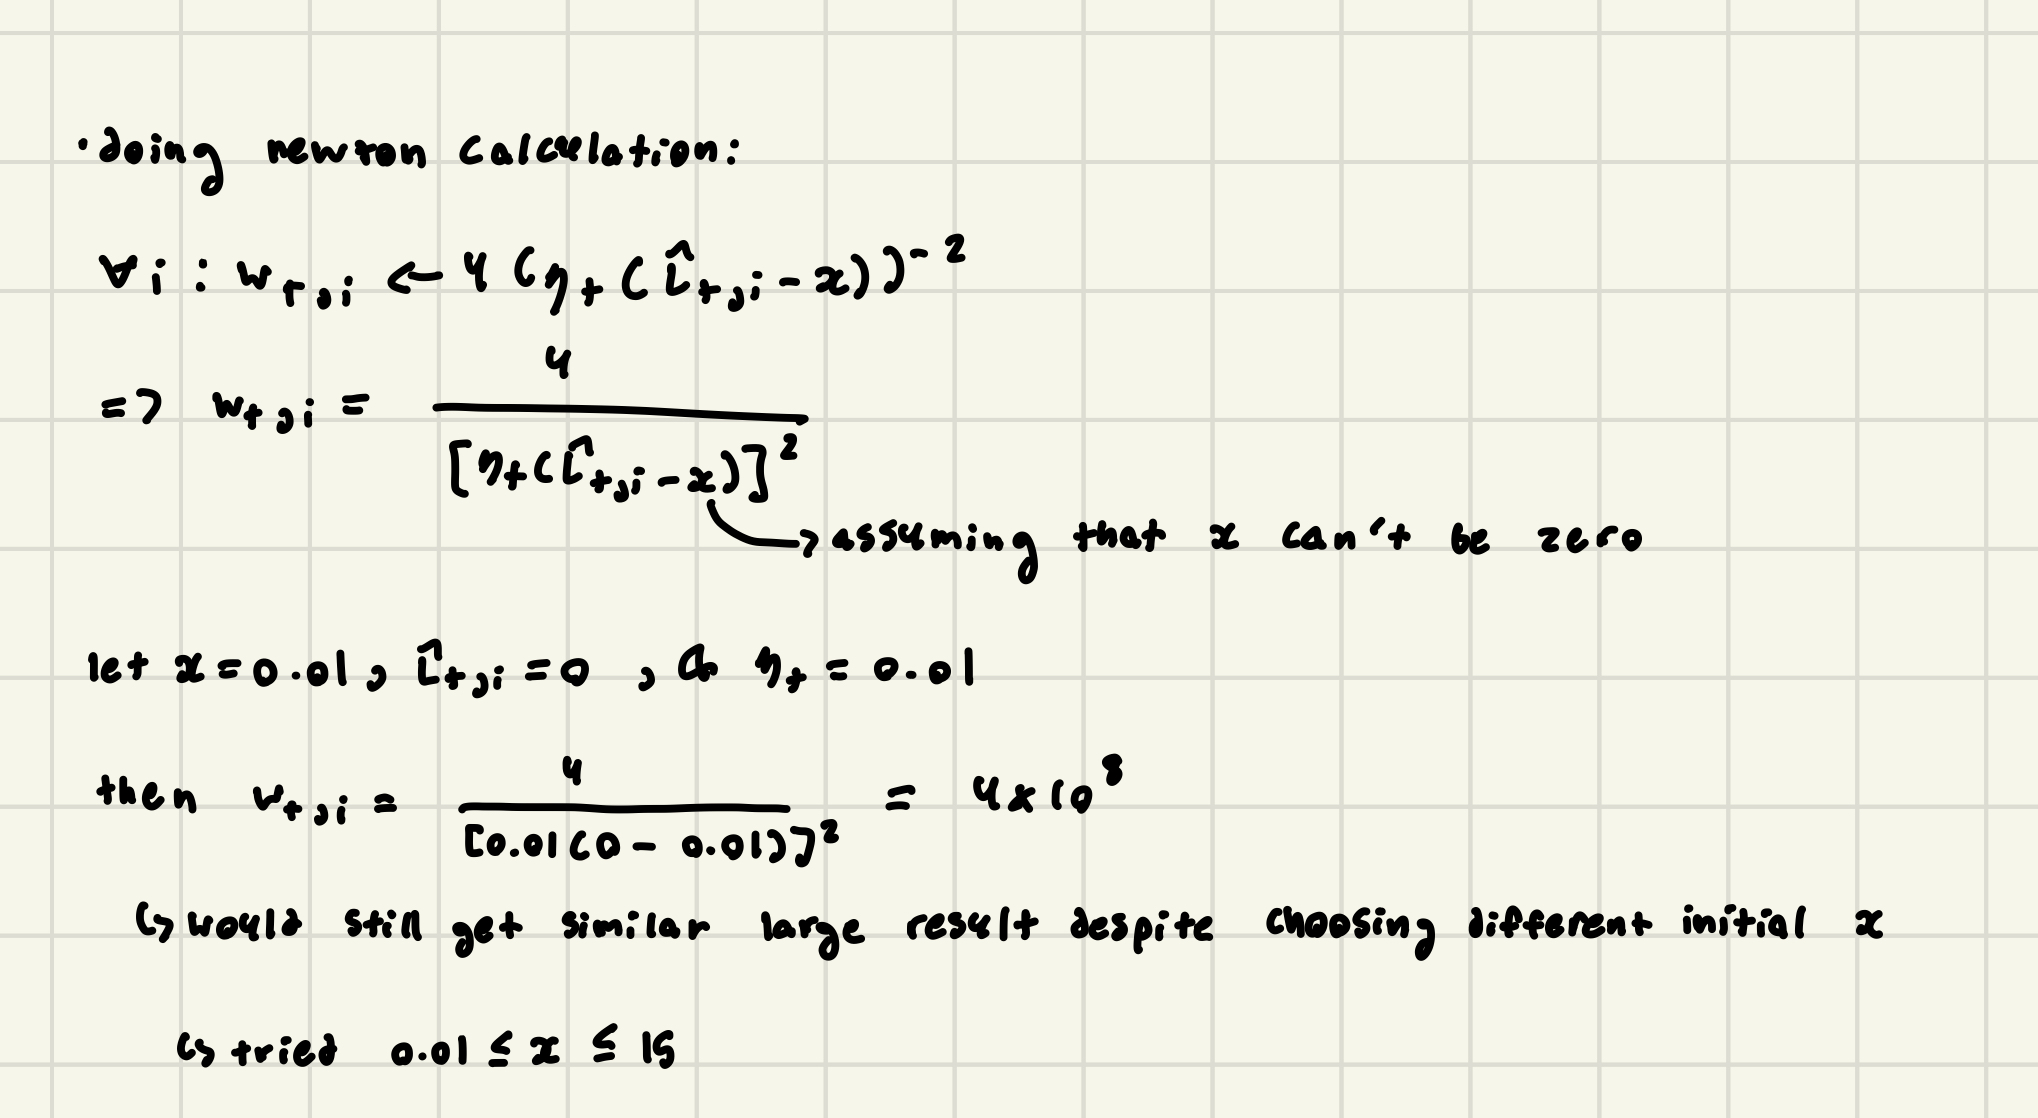 ·doing newton calculation:
∀i : w_{t,i} ← 4 (η_t (L̂_{t,i} - x))^{-2}
=> w_{t,i} = 4 / [η_t (L̂_{t,i} - x)]^2
↳ assuming that x can't be zero
let x = 0.01, L̂_{t,i} = 0, & η_t = 0.01
then w_{t,i} = 4 / [0.01(0 - 0.01)]^2 = 4×10^8
↳ would still get similar large result despite choosing different initial x
↳ tried 0.01 ≤ x ≤ 15